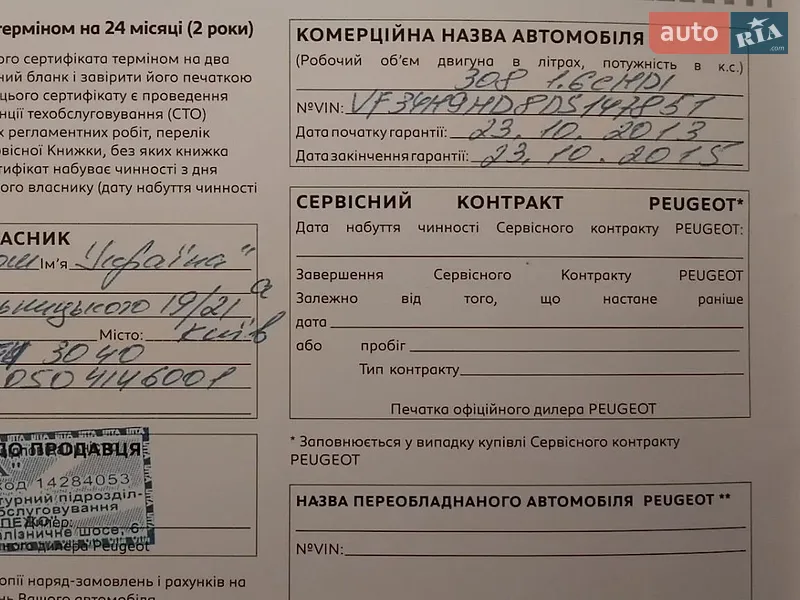 терміном на 24 місяці (2 роки)
ого сертифіката терміном на два
ний бланк і завірити його печаткою
цього сертифікату є проведення
нції техобслуговування (СТО)
х регламентних робіт, перелік
рвісної Книжки, без яких книжка
тифікат набуває чинності з дня
ого власнику (дату набуття чинності
АСНИК
Ім'я "Україна"
19/21 а
Місто: Київ
3040
050 4146001
ПО ПРОДАВЦЯ
код 14284053
турний підрозділ-
бслуговування
Дилер:
лізничне шосе, 6
дилера Peugeot
опії наряд-замовлень і рахунків на
нь Вашого автомобіля
КОМЕРЦІЙНА НАЗВА АВТОМОБІЛЯ
auto RIA .com
(Робочий об'єм двигуна в літрах, потужність в к.с.)
308 1.6 eHDI
№VIN: VF34H9HD8DS147851
Дата початку гарантії: 23. 10. 2013
Дата закінчення гарантії: 23. 10. 2015
СЕРВІСНИЙ КОНТРАКТ PEUGEOT*
Дата набуття чинності Сервісного контракту PEUGEOT:
Завершення Сервісного Контракту PEUGEOT
Залежно від того, що настане раніше
дата
або пробіг
Тип контракту
Печатка офіційного дилера PEUGEOT
* Заповнюється у випадку купівлі Сервісного контракту
PEUGEOT
НАЗВА ПЕРЕОБЛАДНАНОГО АВТОМОБІЛЯ PEUGEOT **
№VIN: